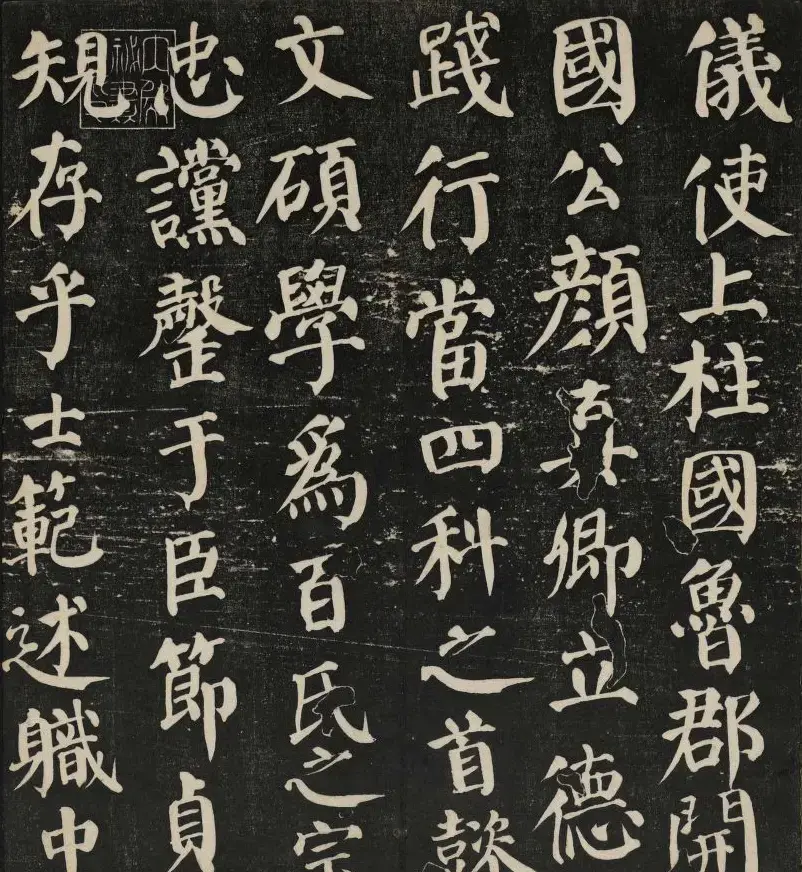 儀使上柱國魯郡開
國公顏真卿立德
踐行當四科之首懿
文碩學為百氏之宗
忠讜罄于臣節貞
規存乎士範述職中